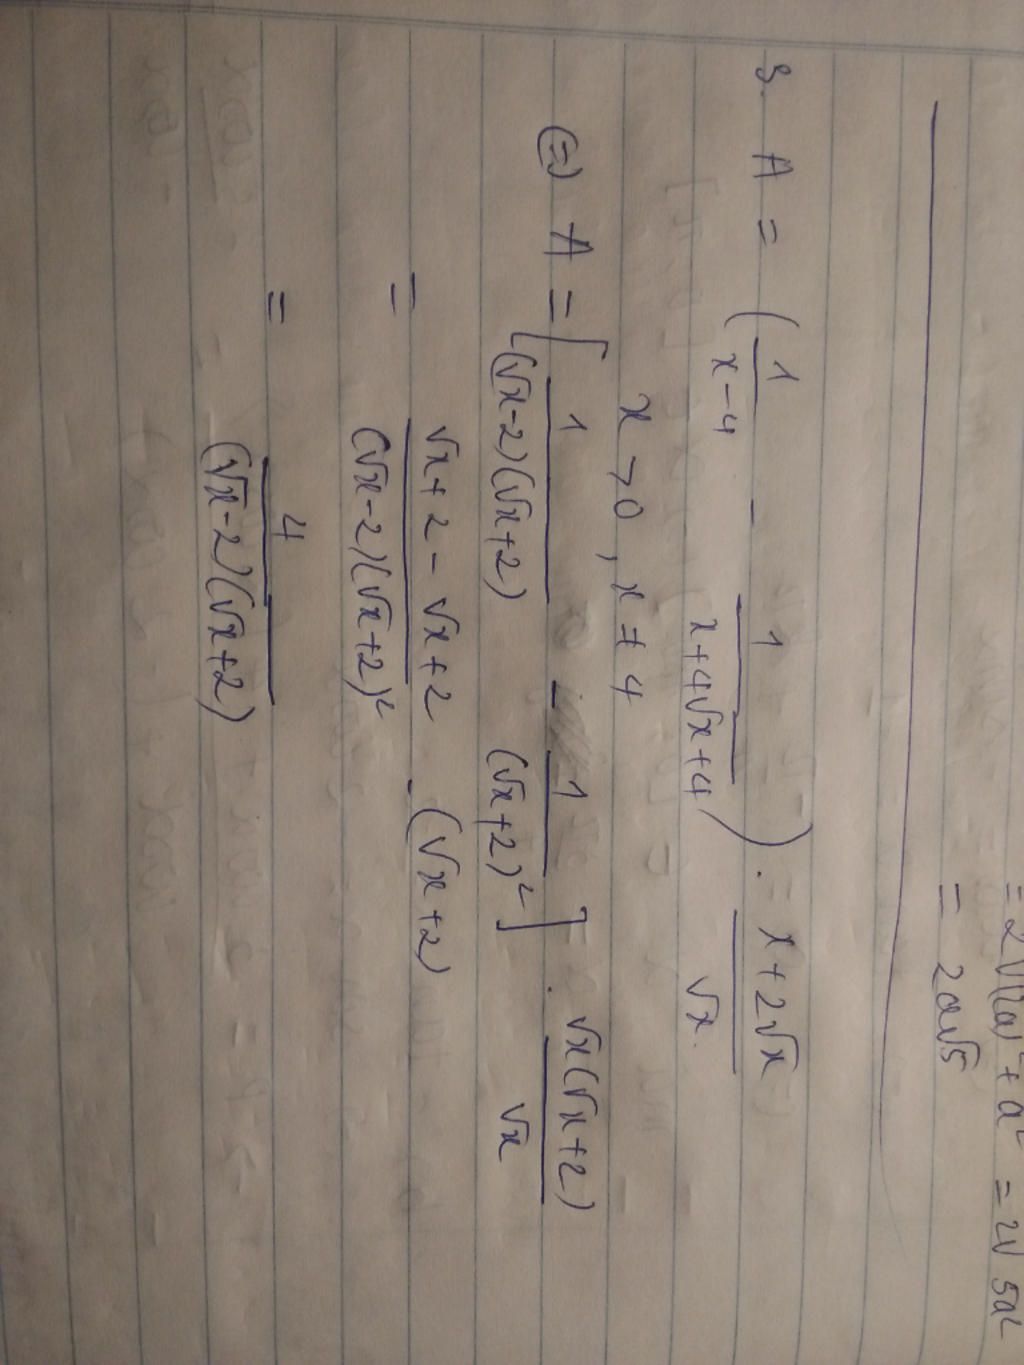 = 2√(2a)² + a² = 2√5a²
= 2a√5
3. A = (1/(x-4) - 1/(x+4√x+4)) · (x+2√x)/√x
x > 0, x ≠ 4
(=) A = [1/((√x-2)(√x+2)) - 1/(√x+2)²] · √x(√x+2)/√x
= (√x+2-√x+2)/((√x-2)(√x+2)²) · (√x+2)
= 4/((√x-2)(√x+2))